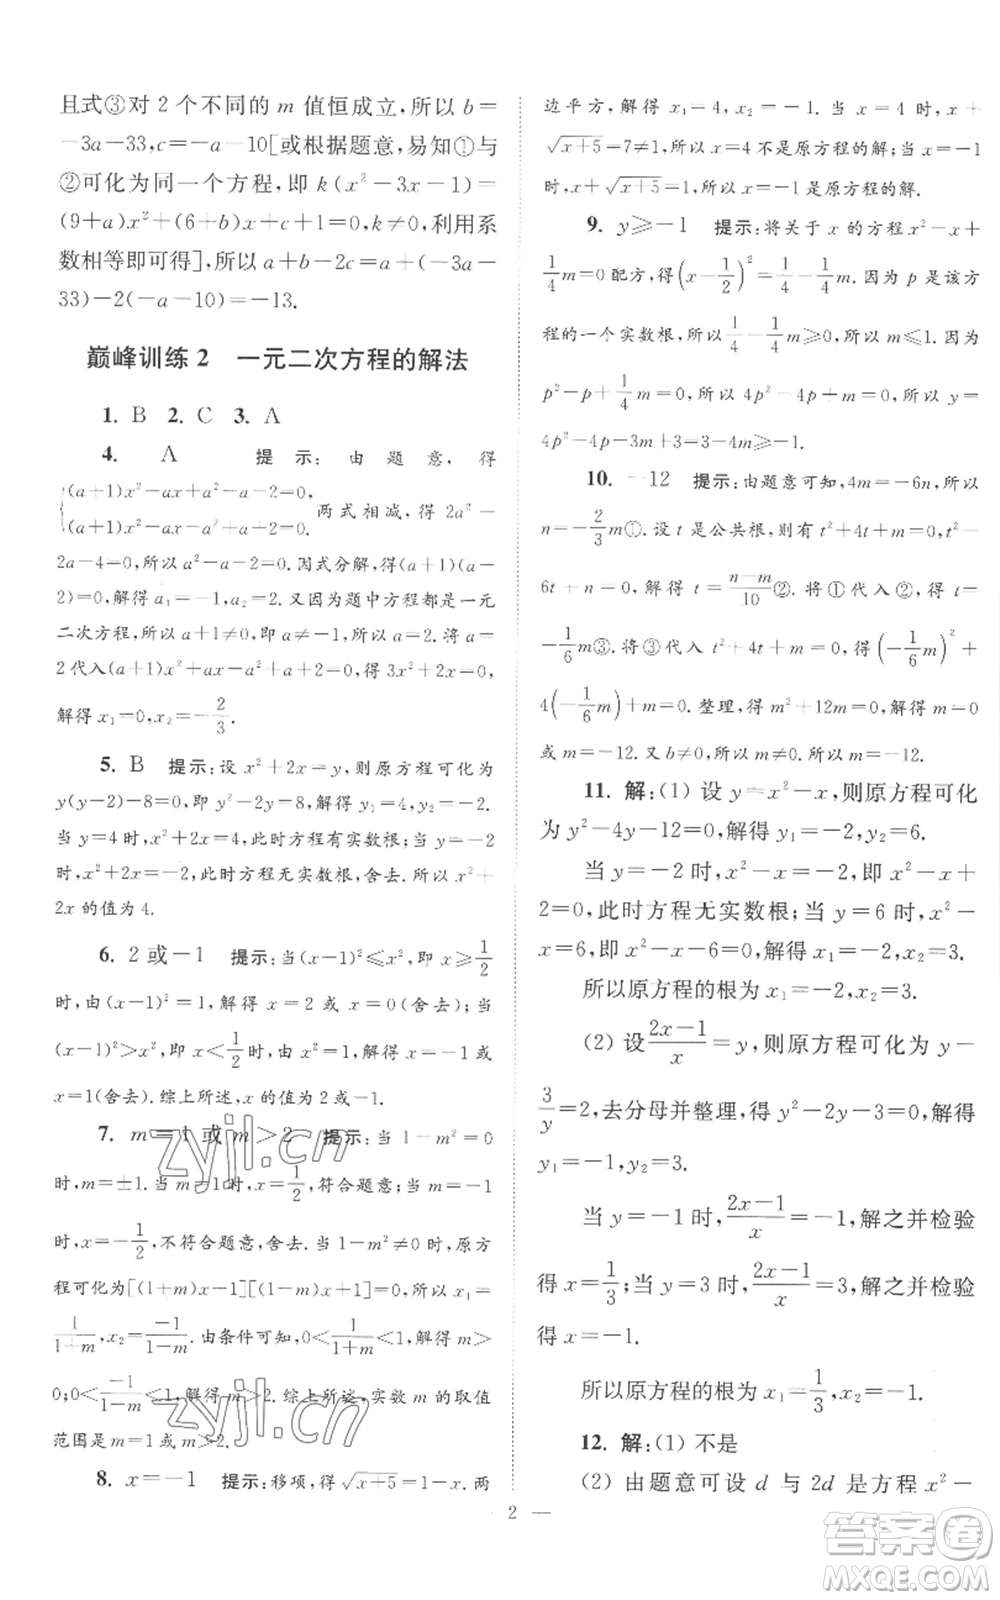 且式③对 2 个不同的 m 值恒成立,所以 b=
-3a-33,c=-a-10[或根据题意,易知①与
②可化为同一个方程,即 k(x²-3x-1)=
(9+a)x²+(6+b)x+c+1=0,k≠0,利用系
数相等即可得],所以 a+b-2c=a+(-3a-
33)-2(-a-10)=-13.
巅峰训练 2 一元二次方程的解法
1. B 2. C 3. A
4. A 提示:由题意,得
{(a+1)x²-ax+a²-a-2=0,
(a+1)x²-ax-a²+a+2=0, 两式相减,得 2a²-
2a-4=0,所以 a²-a-2=0.因式分解,得(a+1)(a-
2)=0,解得 a₁=-1,a₂=2.又因为题中方程都是一元
二次方程,所以 a+1≠0,即 a≠-1,所以 a=2.将 a=
2代入(a+1)x²-ax-a²+a+2=0,得 3x²-2x=0,
解得 x₁=0,x₂=-2/3.
5. B 提示:设 x²+2x=y,则原方程可化为
y(y-2)-8=0,即 y²-2y=8,解得 y₁=4,y₂=-2.
当 y=4 时,x²+2x=4,此时方程有实数根;当 y=-2
时,x²+2x=-2,此时方程无实数根,舍去.所以 x²+
2x 的值为 4.
6. 2 或-1 提示:当(x-1)²≤x²,即 x≥1/2
时,由(x-1)²=1,解得 x=2 或 x=0(舍去);当
(x-1)²>x²,即 x<1/2时,由 x²=1,解得 x=-1 或
x=1(舍去).综上所述,x 的值为 2 或-1.
7. m=1 或 m>2 提示:当 1-m²=0
时,m=±1.当 m=1 时,x=1/2,符合题意;当 m=-1
时,x=-1/2,不符合题意,舍去.当 1-m²≠0 时,原方
程可化为[(1+m)x-1][(1-m)x+1]=0,所以 x₁=
1/(1+m),x₂=-1/(1-m).由条件可知,0<1/(1+m)<1,解得 m>
0;0<-1/(1-m)<1,解得 m>2.综上所述,实数 m 的取值
范围是 m=1 或 m>2.
8. x=-1 提示:移项,得√(x+5)=1-x.两
边平方,解得 x₁=4,x₂=-1.当 x=4 时,x+
√(x+5)=7≠1,所以 x=4 不是原方程的解;当 x=-1
时,x+√(x+5)=1,所以 x=-1 是原方程的解.
9. y≥-1 提示:将关于 x 的方程 x²-x+
1/4m=0 配方,得(x-1/2)²=1/4-1/4m.因为 p 是该方
程的一个实数根,所以1/4-1/4m≥0,所以 m≤1.因为
p²-p+1/4m=0,所以 4p²-4p+m=0,所以 y=
4p²-4p-3m+3=-4m+3≥-1.
10. -12 提示:由题意可知,4m=-6n,所以
n=-2/3m①.设 t 是公共根,则有 t²+4t+m=0,t²-
6t+n=0,解得 t=(n-m)/10②.将①代入②,得 t=
-1/6m③.将③代入 t²+4t+m=0,得(-1/6m)²+
4(-1/6m)+m=0.整理,得 m²+12m=0,所以 m=0
或 m=-12.又 b≠0,所以 m≠0.所以 m=-12.
11. 解:(1) 设 y=x²-x,则原方程可化
为 y²-4y-12=0,解得 y₁=-2,y₂=6.
当 y=-2 时,x²-x=-2,即 x²-x+
2=0,此时方程无实数根;当 y=6 时,x²-
x=6,即 x²-x-6=0,解得 x₁=-2,x₂=3.
所以原方程的根为 x₁=-2,x₂=3.
(2) 设(2x-1)/x=y,则原方程可化为 y-
3/y=2,去分母并整理,得 y²-2y-3=0,解得
y₁=-1,y₂=3.
当 y=-1 时,(2x-1)/x=-1,解之并检验
得 x=1/3;当 y=3 时,(2x-1)/x=3,解之并检验
得 x=-1.
所以原方程的根为 x₁=1/3,x₂=-1.
12. 解:(1) 不是
(2) 由题意可设 d 与 2d 是方程 x²-
2 —
zyjl.cn
zyjl.cn
答案卷
MXQE.COM